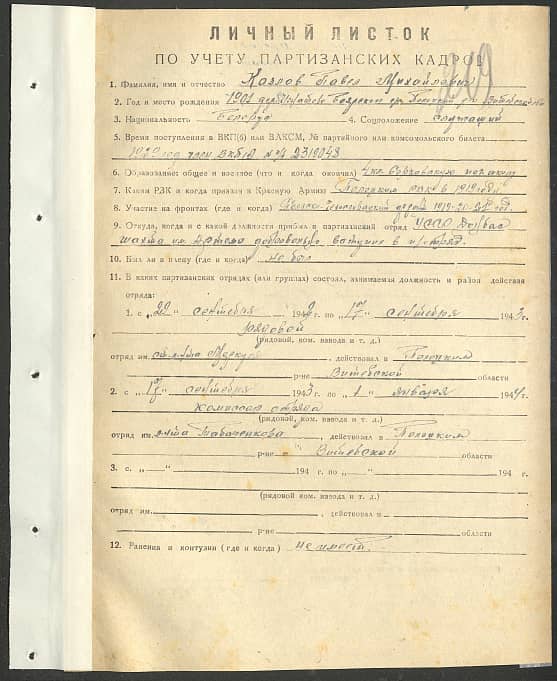 ЛИЧНЫЙ ЛИСТОК
ПО УЧЕТУ ПАРТИЗАНСКИХ КАДРОВ
1. Фамилия, имя и отчество Козлов Павел Михайлович
2. Год и место рождения 1901
3. Национальность Белорус 4. Соцположение служащий
5. Время поступления в ВКП(б) или ВЛКСМ, № партийного или комсомольского билета
1929 год член ВКП(б) № 2319043
6. Образование: общее и военное (что и когда окончил)
7. Каким РВК и когда призван в Красную Армию Полоцким 1919 году
8. Участие на фронтах (где и когда) 1919-20-21 год.
9. Откуда, когда и с какой должности прибыл в партизанский отряд УССР Донбас
шахта им. Артема добровольно вступил в п/отряд.
10. Был ли в плену (где и когда) не был
11. В каких партизанских отрядах (или группах) состоял, занимаемая должность и район действия
отряда:
1. с „22“ сентября 1942 г. по „17“ сентября 1943 г.
рядовой
(рядовой, ком. взвода и т. д.)
отряд им. , действовал в Полоцким
р-не Витебской области
2. с „17“ сентября 1943 г. по „1“ января 1944 г.
комиссар отряда
(рядовой, ком. взвода и т. д.)
отряд им. , действовал в Полоцким
р-не Витебской области
3. с „ “ 194 г. по „ “ 194 г.
(рядовой, ком. взвода и т. д.)
отряд им. , действовал в
р-не области
12. Ранения и контузии (где и когда) не имеет.